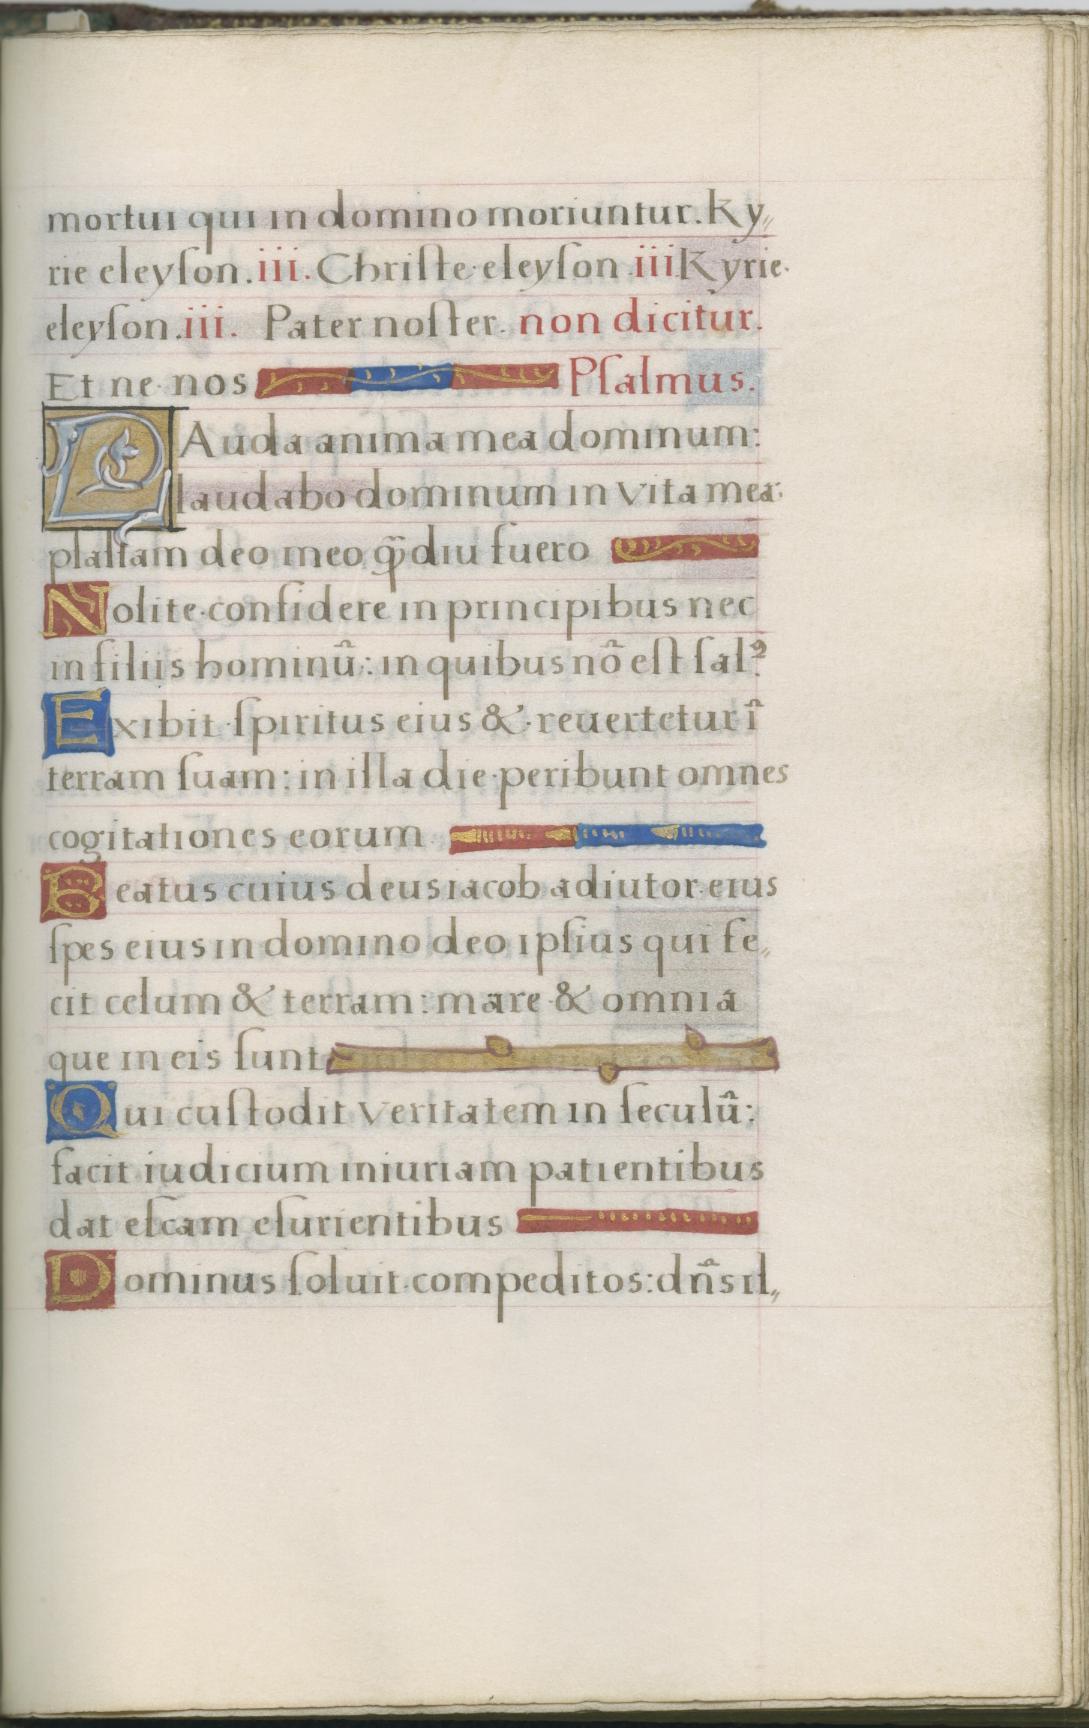 mortui qui in domino moriuntur. Ky„
rie eleyſon .iii. Chriſte eleyſon .iii. Kyrie
eleyſon .iii. Pater noſter. non dicitur.
Et ne nos Pſalmus.
LAuda anima mea dominum:
laudabo dominum in vita mea:
pſallam deo meo q̃diu fuero
Nolite confidere in principibus nec
in filiis hominũ: in quibus nõ eſt ſalꝰ
Exibit ſpiritus eius & reuertetur ĩ
terram ſuam: in illa die peribunt omnes
cogitationes eorum
Beatus cuius deus iacob adiutor eius
ſpes eius in domino deo ipſius qui fe„
cit celum & terram: mare & omnia
que in eis ſunt
Qui cuſtodit veritatem in ſeculũ:
facit iudicium iniuriam patientibus
dat eſcam eſurientibus
Dominus ſoluit compeditos: dñs il„